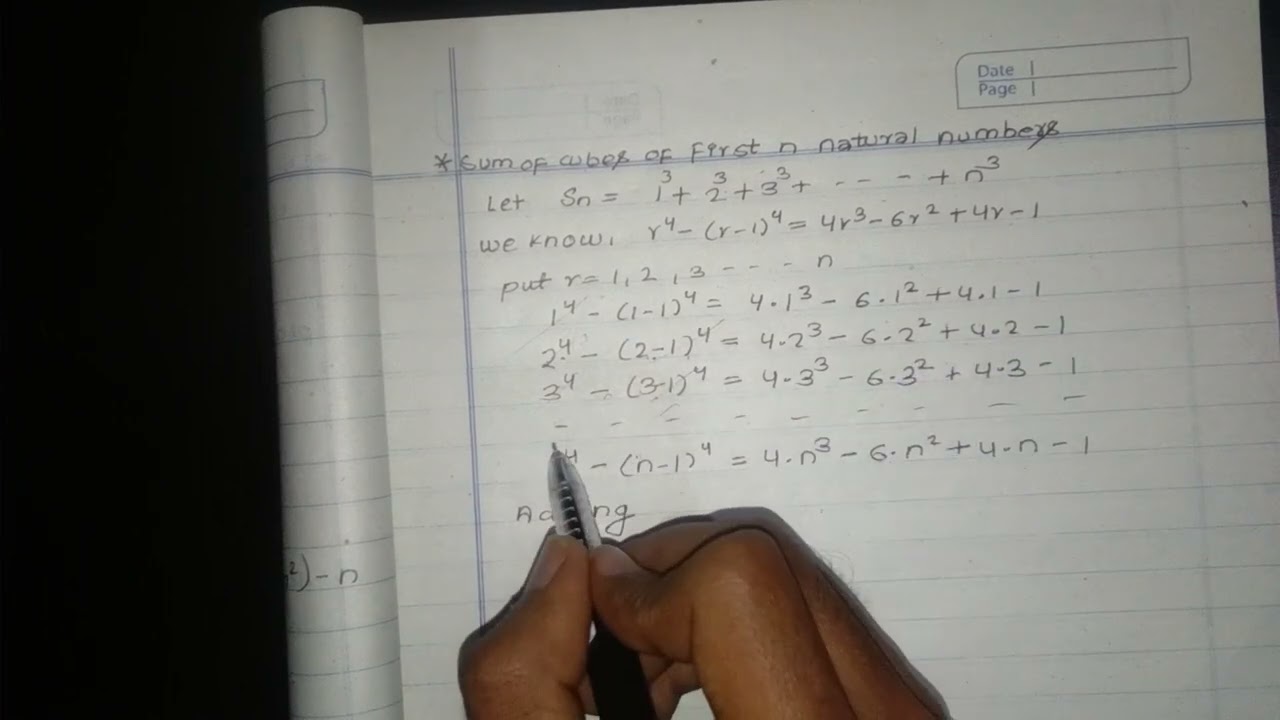 Date
Page
* Sum of cubes of First n natural numbers
Let Sn = 1³ + 2³ + 3³ + - - - - + n³
we know, r⁴ - (r-1)⁴ = 4r³ - 6r² + 4r - 1
put r = 1, 2, 3 - - - - n
1⁴ - (1-1)⁴ = 4·1³ - 6·1² + 4·1 - 1
2⁴ - (2-1)⁴ = 4·2³ - 6·2² + 4·2 - 1
3⁴ - (3-1)⁴ = 4·3³ - 6·3² + 4·3 - 1
- - - - - - - - -
⁴ - (n-1)⁴ = 4·n³ - 6·n² + 4·n - 1
²) - n